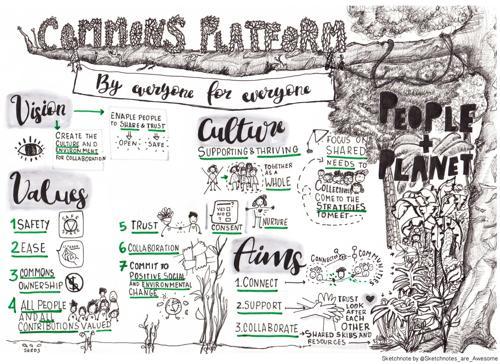 COMMONS PLATFORM
By everyone for everyone
Vision
CREATE THE
CULTURE AND
ENVIRONMENT
FOR COLLABORATION
ENABLE PEOPLE
TO SHARE & TRUST
OPEN
SAFE
Culture
SUPPORTING & THRIVING
TOGETHER
AS A
WHOLE
YES
NO
CONSENT
NURTURE
FOCUS ON
SHARED
NEEDS TO
COLLECTIVELY
COME TO THE
STRATEGIES
TO MEET
PEOPLE
+
PLANET
Values
1 SAFETY
2 EASE
3 COMMONS
OWNERSHIP
4 ALL PEOPLE
AND ALL
CONTRIBUTIONS VALUED
SEEDS
5 TRUST
6 COLLABORATION
7 COMMIT TO
POSITIVE SOCIAL
AND ENVIRONMENTAL
CHANGE
Aims
1. CONNECT
2. SUPPORT
3. COLLABORATE
COMMUNITIES
TRUST
LOOK
AFTER
EACH
OTHER
SHARED SKILLS AND
RESOURCES
Sketchnote by @Sketchnotes_are_Awesome